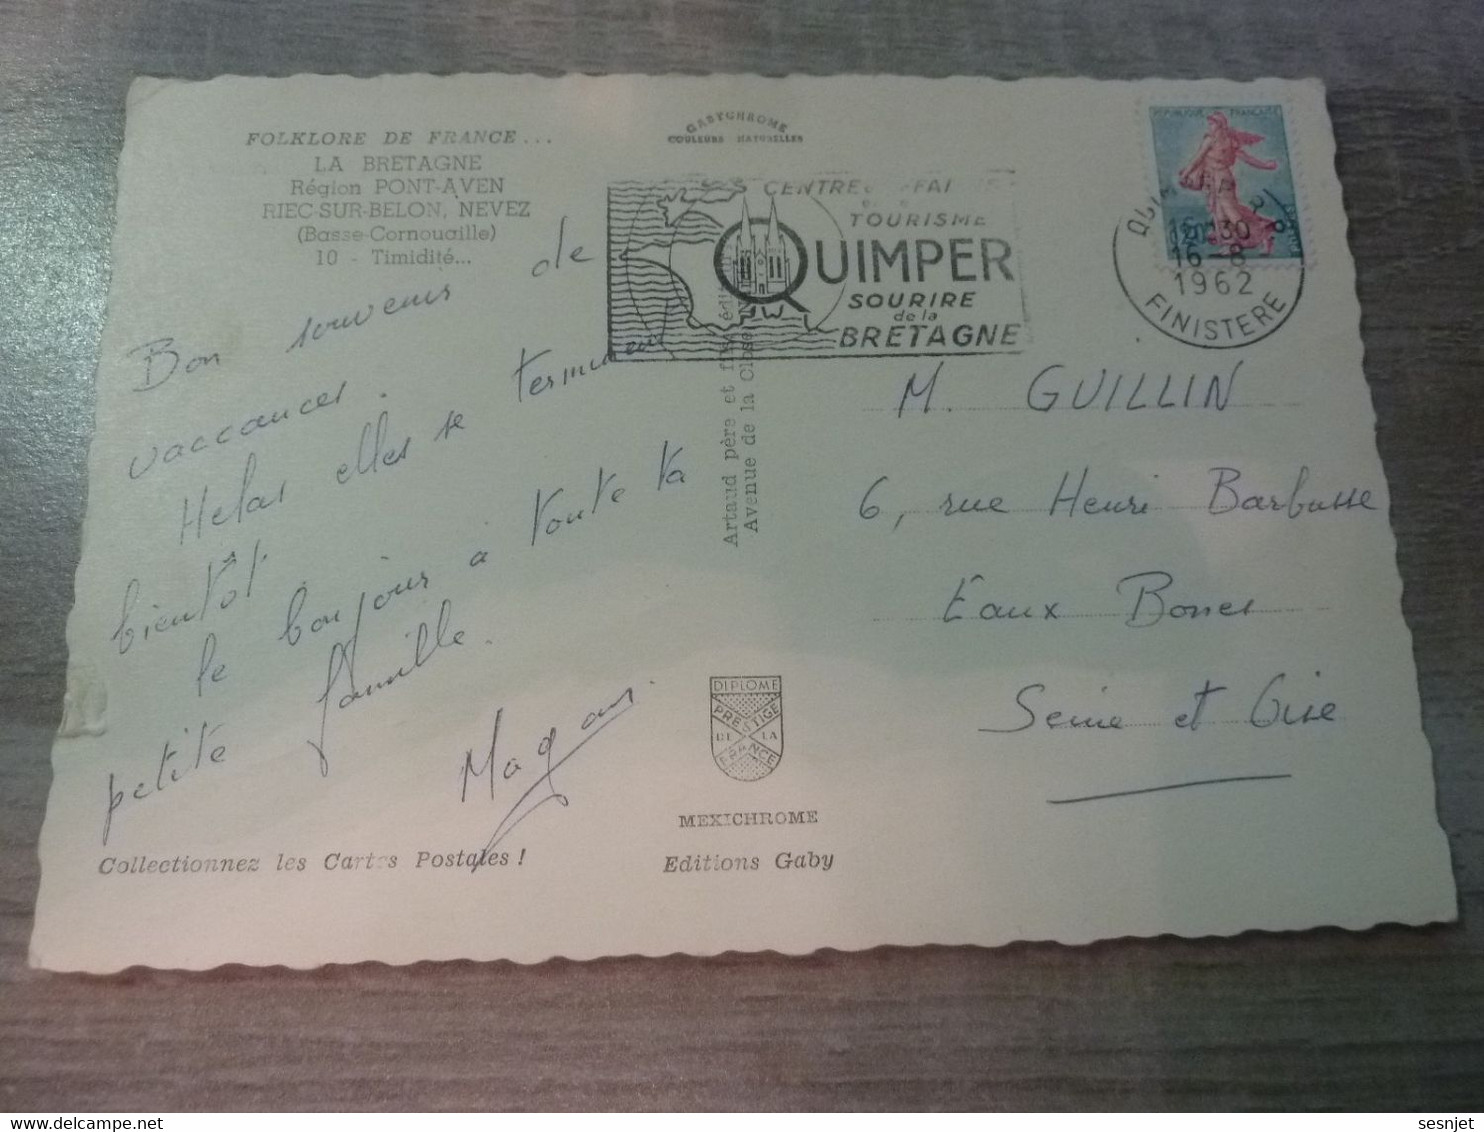 FOLKLORE DE FRANCE...
LA BRETAGNE
Région PONT-AVEN
RIEC-SUR-BELON, NEVEZ
(Basse-Cornouaille)
10 - Timidité...
GABYCHROME
COULEURS NATURELLES
CENTRE
TOURISME
QUIMPER
SOURIRE
de la
BRETAGNE
REPUBLIQUE FRANÇAISE
16-8
1962
FINISTERE
Bon souvenir de
vaccances.
Helas elles se terminent
bientôt.
le bonjour à toute ta
petite famille.
Artaud père et fils
Avenue de la Close
M. GUILLIN
6, rue Henri Barbusse
Eaux Bones
Seine et Oise
DIPLOME
PRESTIGE
DE LA
FRANCE
MEXICHROME
Editions Gaby
Collectionnez les Cartes Postales !
sesnjet